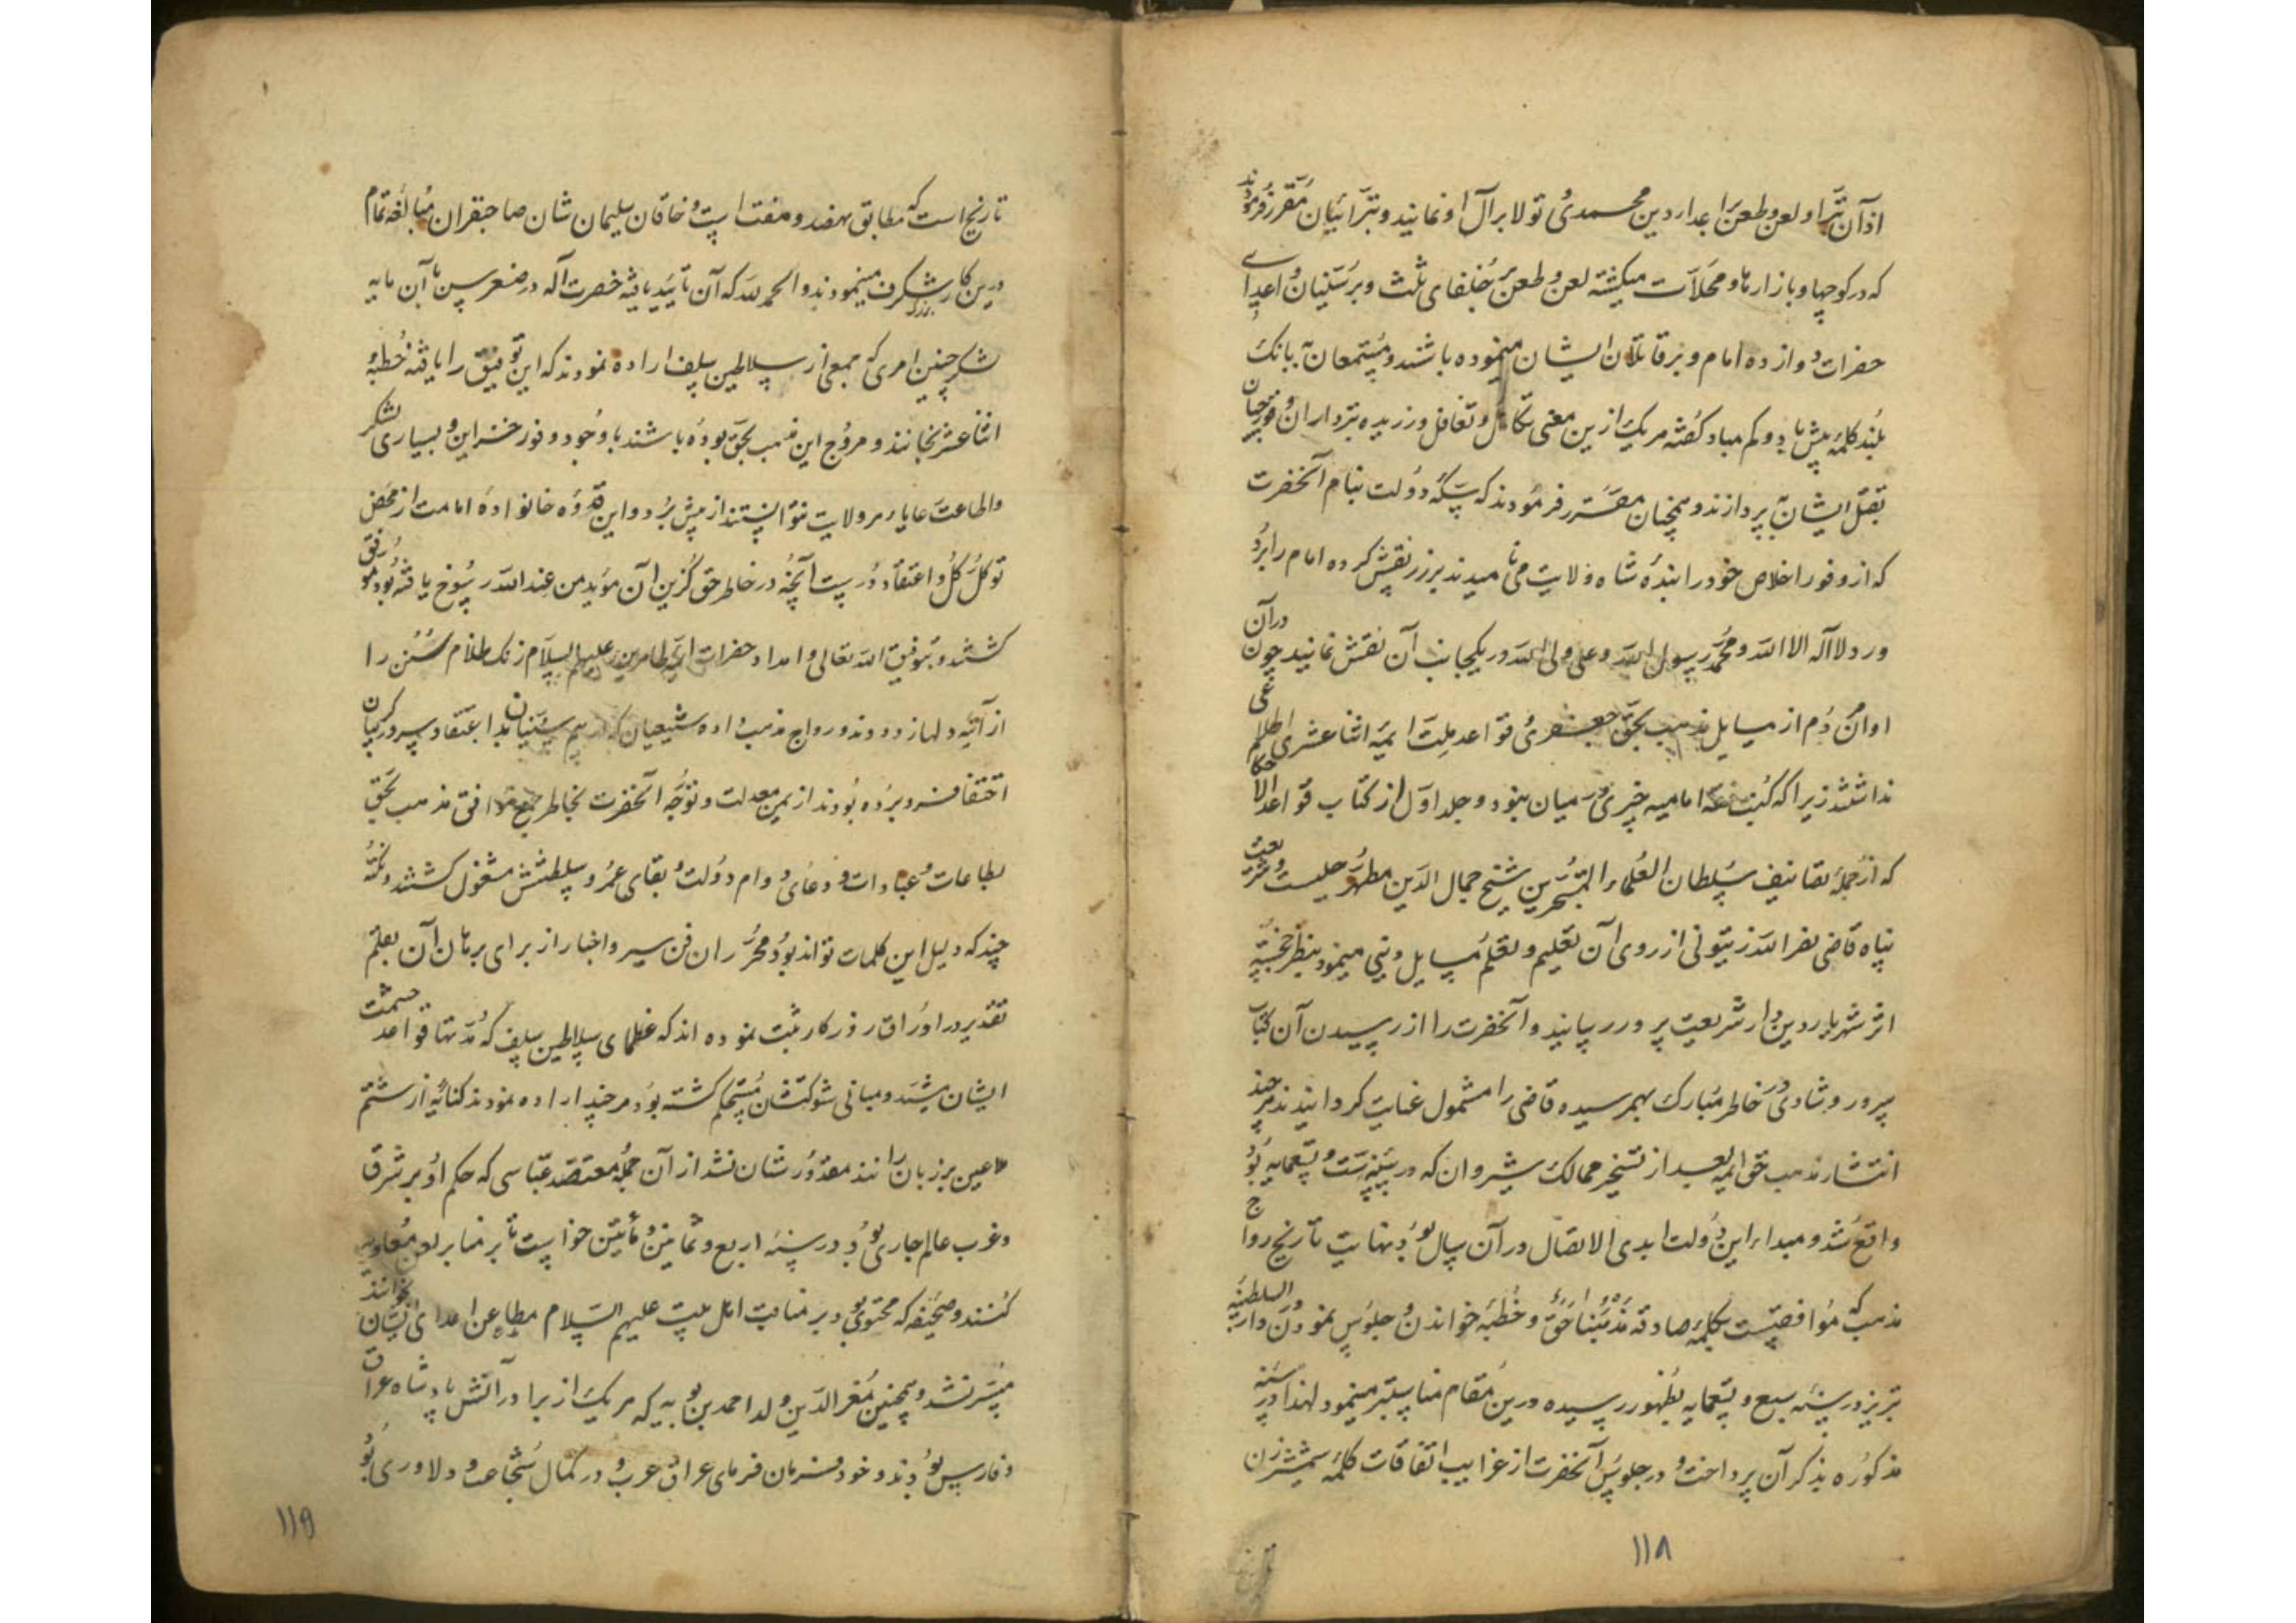 از آن تبرا و لعن و طعن بر اعدای دین محمدی و تولا بر آل او نمایند و تبرائیان مقرر فرمودند
که در کوچها و بازارها و محلات میکشته لعن و طعن بر خلفای ثلث و بر سنیان و اعدای
حضرات دوازده امام و بر قاتلان ایشان مینموده باشند و مستمعان ببانک
بلند کلمه بیش باد و کم مباد کفته هر یک ازین معنی تکاهل و تغافل ورزیده تبرداران و قورچیان
بقتل ایشان پردازند و همچنان مقرر فرمودند که سکه دولت بنام آنحضرت
که از وفور اخلاص خود را بنده شاه ولایت می نامیدند بر زر نقش کرده امام را برد
ورد لا اله الا الله و محمد رسول الله و علی ولی الله در یکجانب آن نقش نمایند چون در آن
اوان مردم از مسایل مذهب بحق جعفری و قواعد ملت ایمه اثنا عشری اطلاعی
نداشتند زیرا که کتب فقه امامیه چیزی در میان نبود و جلد اول از کتاب قواعد الاحکام
که از جمله تصانیف سلطان العلماء المتبحرین شیخ جمال الدین مطهر حلیست و شریعت
پناه قاضی نصر الله زیتونی از روی آن تعلیم و تعلم مسایل دینی مینمود بنظر خجسته
اثر شهریار دین دار شریعت پرور رسانید و آنحضرت را از رسیدن آن کتاب
سرور و شادی در خاطر مبارک بهمرسیده قاضی را مشمول عنایت کردانیدند هر چند
انتشار مذهب حق ایمه بعد از تسخیر ممالک شیروان که در سنه ست و تسعمایه بود
واقع شد و مبداء این دولت ابدی الاتصال در آن سال بود نهایت تاریخ رواج
مذهب که موافقست بکلمه صادقه مذهبنا حق و خطبه خواندن و جلوس نمودن در دار السلطنه
تبریز در سنه سبع و تسعمایه بظهور رسیده درین مقام مناسبتر مینمود لهذا در سنه
مذکوره بذکر آن پرداخت و در جلوس آنحضرت از غرایب اتفاقات کلمه شمشیرزن
۱۱۸
تاریخ است که مطابق نهصد و هفت است و خاقان سلیمان شان صاحبقران مبالغه تمام
درین کار شکرف مینمودند و الحمد لله که آن تایید یافته حضرت اله در صغر سن با آن مایه
لشکر چنین امری که جمعی از سلاطین سلف اراده نمودند که این توفیق را یافته خطبه
اثنا عشر بخوانند و مروج این مذهب بحق بوده باشند با وجود وفور خزاین و بسیاری لشکر
و اطاعت رعایاء هر ولایت نتوانستند از پیش برد و این قدوه خانواده امامت از محض
توکل کل و اعتقاد درست آنچه در خاطر حق کزین آن موید من عند الله رسوخ یافته بود موفق
کشتند و بتوفیق الله تعالی و امداد حضرات ایمه طاهرین علیهم السلام زنک ظلام سنن را
از آینه دلها زدودند و رواج مذهب داده شیعیان که از بیم سنیان بد اعتقاد سر در کریبان
اختفا فرو برده بودند از یمن معدلت و توجه آنحضرت بخاطر جمع موافق مذهب بحق
بطاعات و عبادات و دعای دوام دولت و بقای عمر و سلطنتش مشغول کشتند و نکته
چند که دلیل این کلمات تواند بود محرران فن سیر و اخبار از برای برهان آن بقلم
تقدیر در اوراق روزکار ثبت نموده اند که عظمای سلاطین سلف که مدتها قواعد حشمت
ایشان مشید و مبانی شوکتشان مستحکم کشته بود هر چند اراده نمودند کنایه از شتم
ملاعین بر زبان رانند مقدورشان نشد از آن جمله معتضد عباسی که حکم او بر شرق
و غرب عالم جاری بود در سنه اربع و ثمانین و مأتین خواست تا بر منابر لعن معاویه
کنند و صحیفه که محتوی بود بر مناقب اهل بیت علیهم السلام مطاعن اعدای ایشان خوانند
میسر نشد و همچنین معز الدین ولد احمد بن بویه که هر یک از برادرانش پادشاه عراق
و فارس بودند و خود فرمان فرمای عراق عرب و در کمال شجاعت و دلاوری بود
۱۱۹